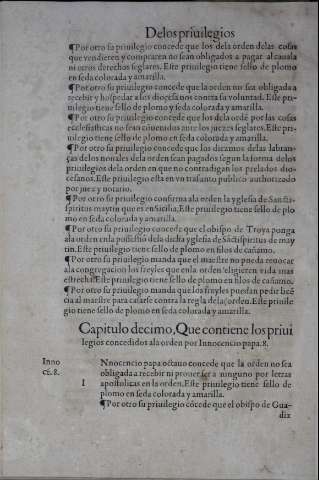 Delos priuilegios
¶Por otro su priuilegio concede que los dela orden delas cosas
que vendieren y compraren no sean obligados a pagar alcauala
ni otros derechos seglares. Este priuilegio tiene sello de plomo
en seda colorada y amarilla.
¶Por otro su priuilegio concede que la orden no sea obligada a
recebir y hospedar a los diocesanos contra su voluntad. Este pri-
uilegio tiene sello de plomo y seda colorada y amarilla.
¶Por otro su priuilegio concede que los dela ordē por las cosas
ecclesiasticas no sean conuenidos ante los juezes seglares. Este pri-
uilegio tiene sello de plomo en seda colorada y amarilla.
¶Por otro su priuilegio concede que los diezmos delas labran-
ças delos nouales dela orden sean pagados segun la forma delos
priuilegios dela orden en que no contradigan los prelados dio-
cesanos. Este priuilegio esta en vn trasunto publico authorizado
por juez y notario.
¶Por otro su priuilegio confirma ala orden la yglesia de Sancti-
spiritus maytin que es en Sicilia. Este priuilegio tiene sello de plo
mo en seda colorada y amarilla.
¶Por otro su priuilegio concede que el obispo de Troya ponga
ala orden enla possessiō dela dicha yglesia de Sāctispiritus de may
tin. Este priuilegio tiene sello de plomo en filos de cañamo.
¶Por otro su priuilegio manda que el maestre no pueda reuocar
ala congregacion los freyles que enla orden eligieren vida mas
estrecha. Este priuilegio tiene sello de plomo en filos de cañamo.
¶Por otro su priuilegio manda que los freyles puedan pedir licē
cia al maestre para casarse contra la regla dela orden. Este priuile
gio tiene sello de plomo en seda colorada y amarilla.
Capitulo decimo, Que contiene los priui
legios concedidos ala orden por Innocencio papa. 8.
Inno
cē. 8.
I
Nnocencio papa octauo concede que la orden no sea
obligada a recebir ni proueer a ninguno por letras
apostolicas en la orden. Este priuilegio tiene sello de
plomo en seda colorada y amarilla.
¶Por otro su priuilegio cōcede que el obispo de Gua-
dix